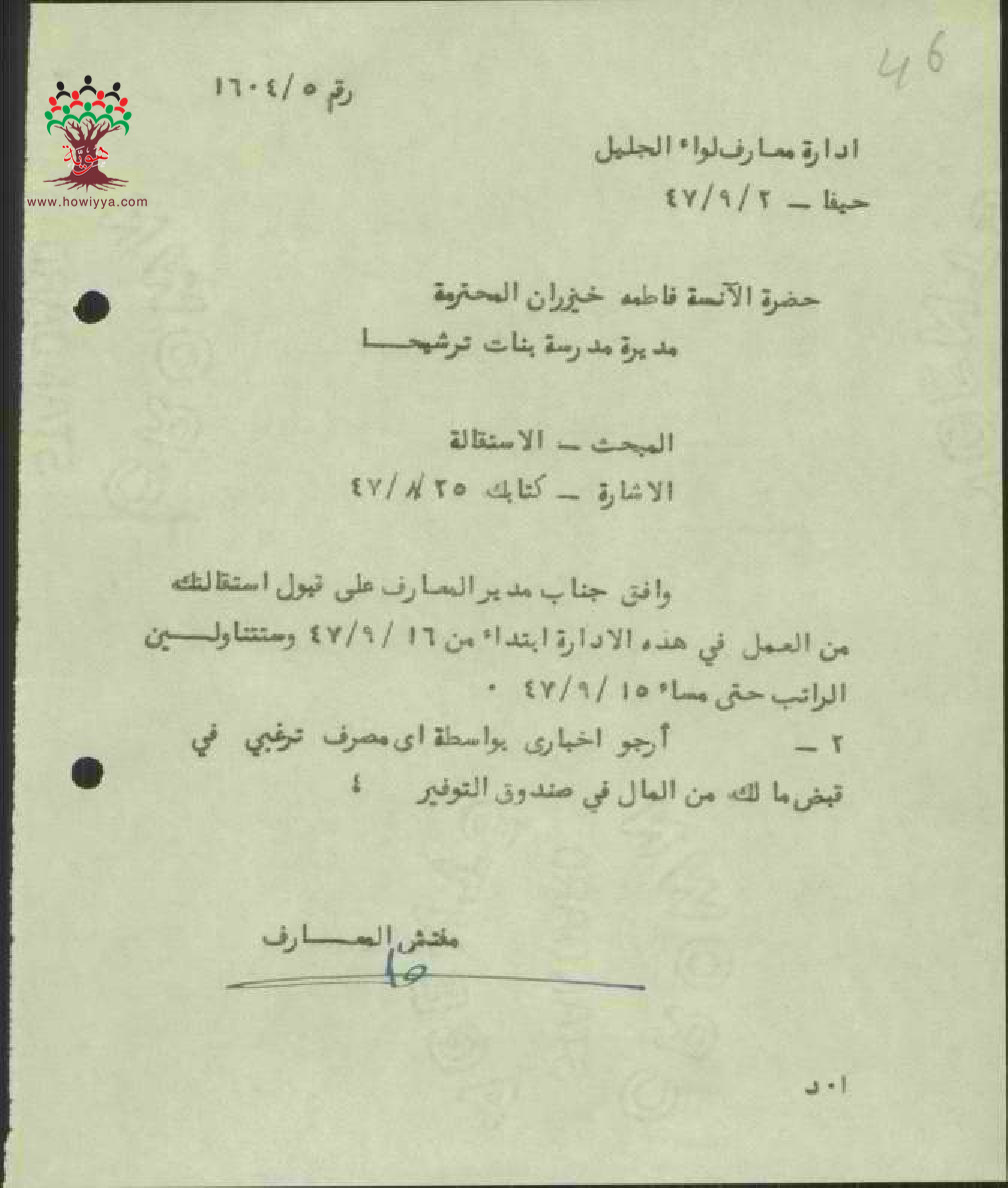 46
رقم ١٦٠٤/٥
هوية
www.howiyya.com
ادارة معارف لواء الجليل
حيفا – ٤٧/٩/٢
حضرة الآنسة فاطمه خيزران المحترمة
مديرة مدرسة بنات ترشيحــا
المبحث – الاستقالة
الاشارة – كتابك ٤٧/٨/٢٥
وافق جناب مدير المعارف على قبول استقالتك
من العمل في هذه الادارة ابتداء من ٤٧/٩/١٦ وستتناولــين
الراتب حتى مساء ٤٧/٩/١٥ ٠
٢ – أرجو اخبارى بواسطة اى مصرف ترغبي في
قبض ما لك من المال في صندوق التوفير ؟
مفتش المعــارف
ا٠د